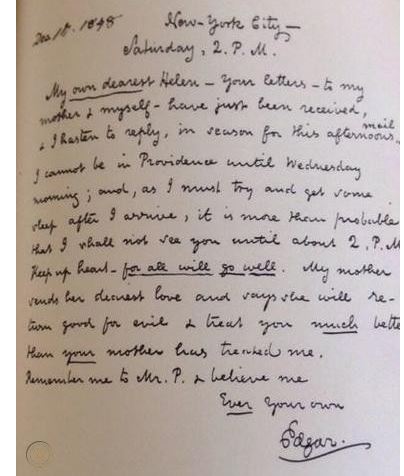 Dec 16. 1848
New-York City-
Saturday, 2. P.M.
My own dearest Helen - Your letters - to my
mother & myself - have just been received,
& I hasten to reply, in season for this afternoon's mail.
I cannot be in Providence until Wednesday
morning; and, as I must try and get some
sleep after I arrive, it is more than probable
that I shall not see you until about 2. P.M.
Keep up heart - for all will go well. My mother
sends her dearest love and says she will re-
turn good for evil & treat you much bette
than your mother has treated me.
Remember me to Mr. P. & believe me
Ever Your own
Edgar.